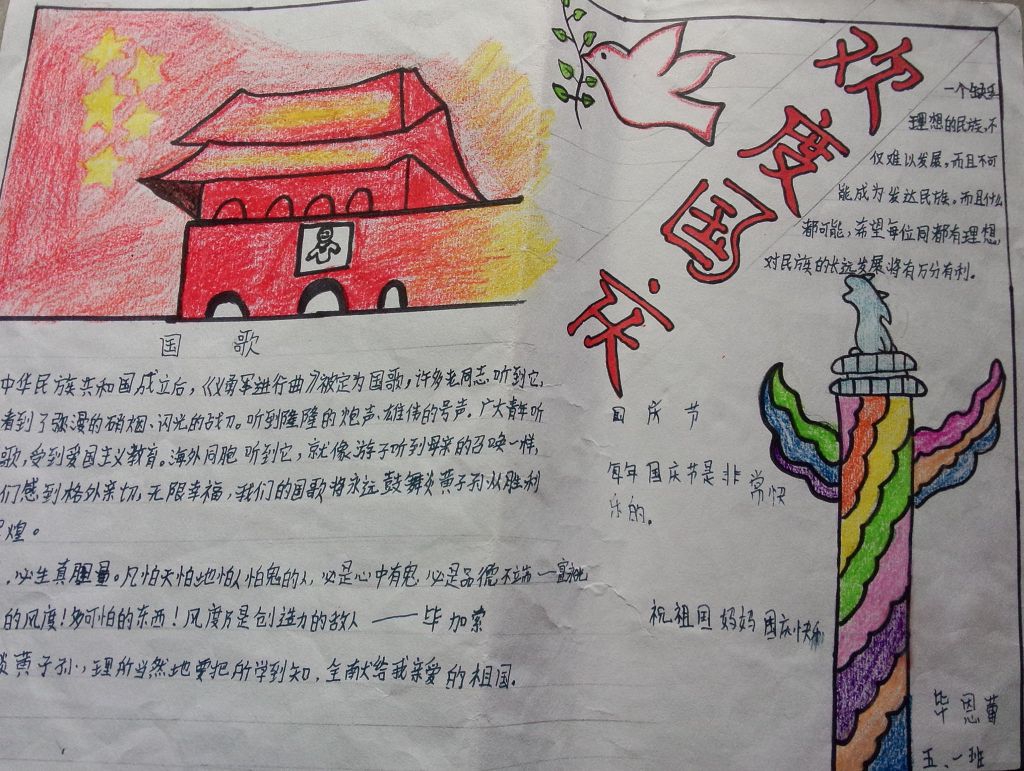 欢度国庆
理想的民族,不
仅难以发展,而且不可
能成为发达民族。而且什么
都可能,希望每位同都有理想,
对民族的长远发展将有万分有利。
国 歌
中华民族共和国成立后,《义勇军进行曲》被定为国歌,许多老同志听到它,
看到了弥漫的硝烟、闪光的战刀。听到隆隆的炮声、雄伟的号声。广大青年听
歌,受到爱国主义教育。海外同胞听到它,就像游子听到母亲的召唤一样,
们感到格外亲切,无限幸福,我们的国歌将永远鼓舞炎黄子孙从胜利
煌。
,必生真胆量。凡怕天怕地怕人怕鬼的人,必是心中有鬼,必是品德不端
的风度!多可怕的东西!风度乃是创造力的敌人——毕加索
黄子孙,理所当然地要把所学到知,全献给我亲爱的祖国.
国 庆 节
每年国庆节是非常快
乐的。
祝祖国妈妈国庆快乐
毕恩蕾
五、一班